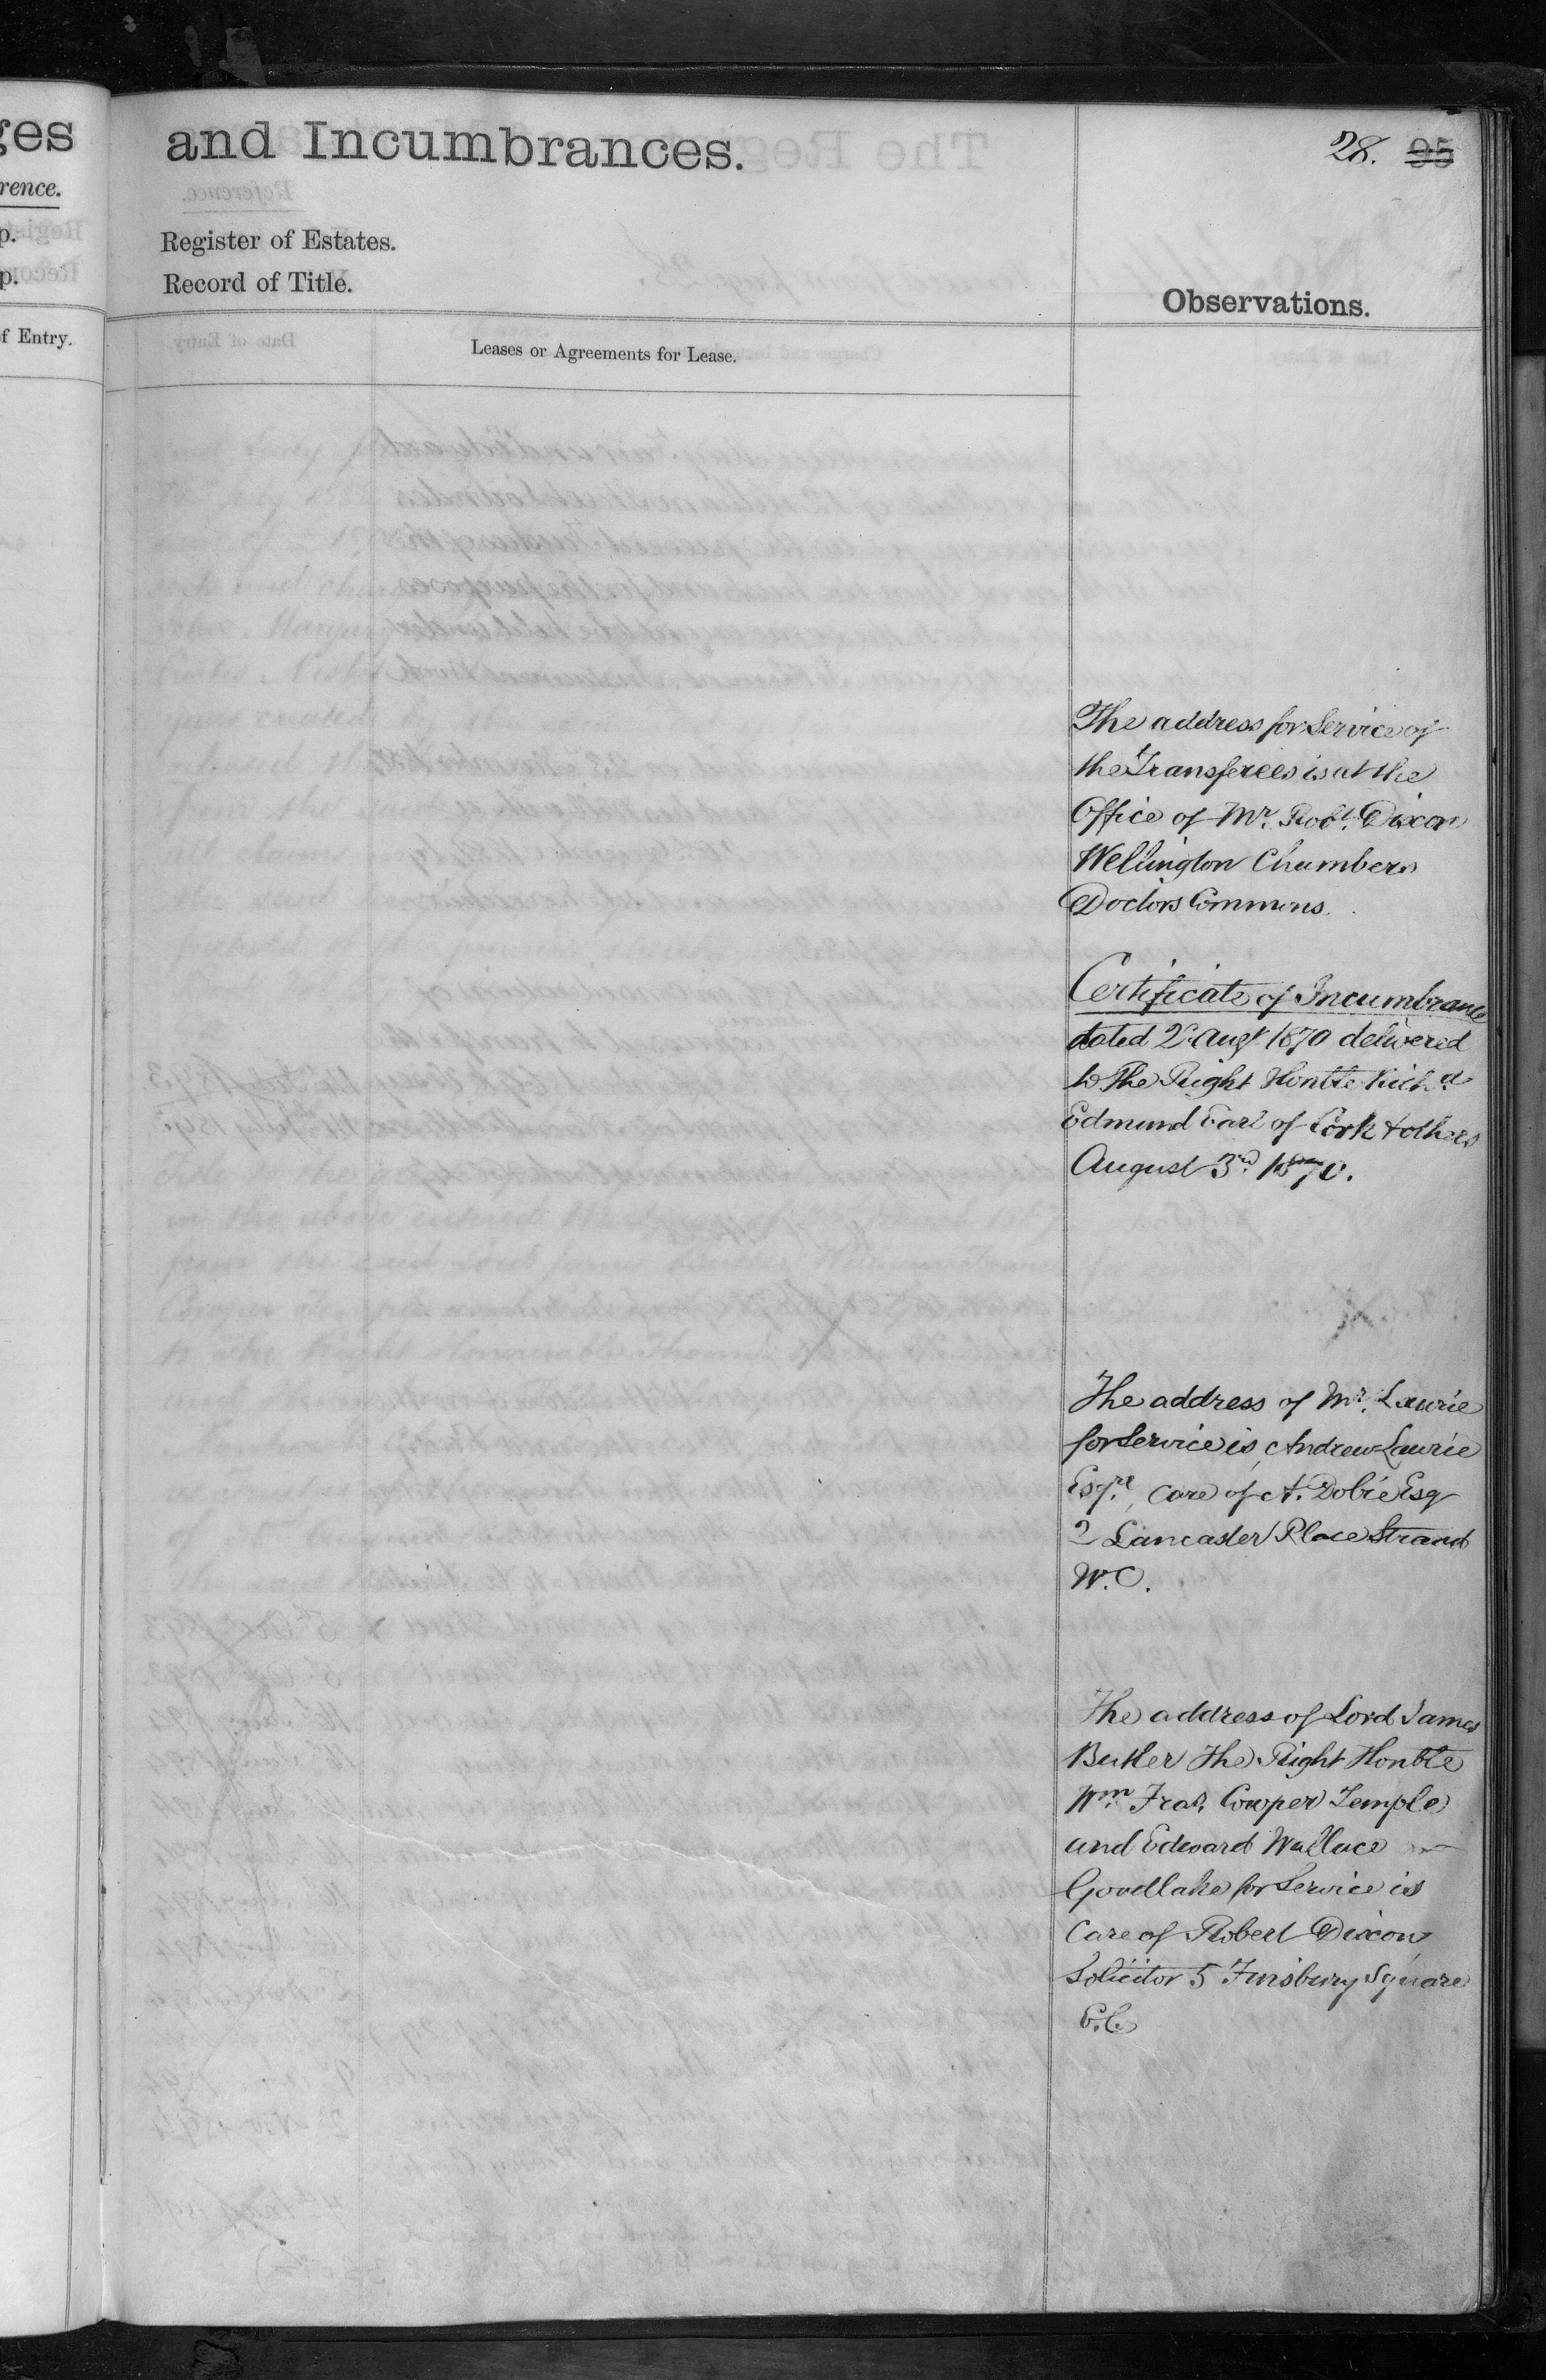 ges
rence.
p.
p.
f Entry.
and Incumbrances.
28. 95
Register of Estates.
Record of Title.
Observations.
Leases or Agreements for Lease.
The address for Service of
the Transferees is at the
Office of Mr. Robt. Dixon
Wellington Chambers
Doctors Commons.
Certificate of Incumbrance
dated 2 Augt 1870 delivered
to The Right Honble Richd.
Edmund Earl of Cork & others
August 3rd 1870.
The address of Mr. Lawrie
for Service is Andrew Lawrie
Esqre, care of A. Dobie Esq
2 Lancaster Place Strand
W.C.
The address of Lord James
Butler The Right Honble
Wm. Fras. Cowper Temple
and Edward Wallace
Goodlake for Service is
Care of Robert Dixon
Solicitor 5 Finsbury Square
E.C